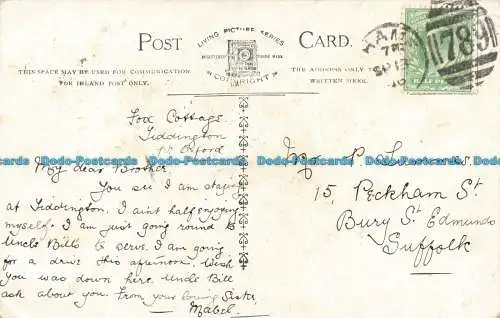 POST CARD.
LIVING PICTURE SERIES
COPYRIGHT
THIS SPACE MAY BE USED FOR COMMUNICATION
FOR INLAND POST ONLY.
THE ADDRESS ONLY
WRITTEN HERE.
789
Fox Cottage
Tiddington
Nr Oxford
My dear Brother
You see I am staying
at Tiddington. I aint half enjoying
myself. I am just going round to
Uncle Bills to serve. I am going
for a drive this afternoon. Wish
you was down here. Uncle Bill
ask about you. From your loving Sister,
Mabel.
P.
15, Peckham St.
Bury St. Edmunds
Suffolk
Dodo-Postcards Dodo-Postcards Dodo-Postcards Dodo-Postcards